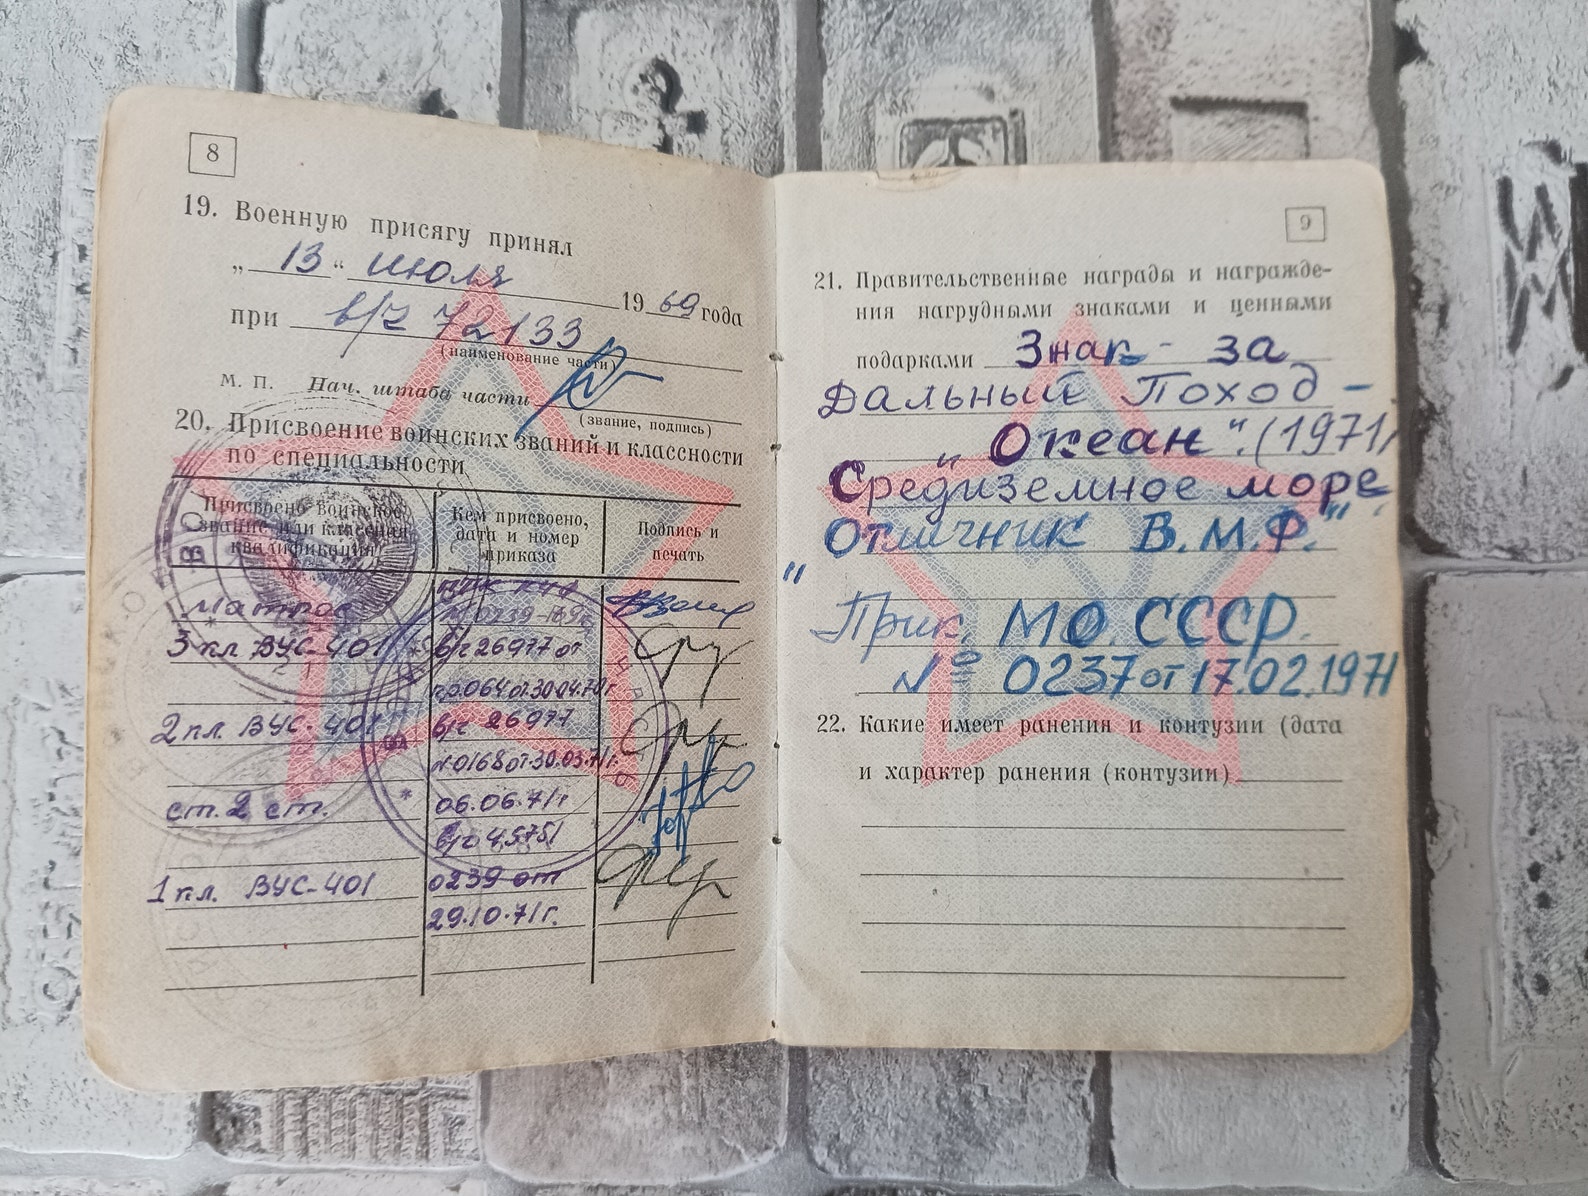 8
19. Военную присягу принял
„ 13 “ июля 19 69 года
при в/ч 72133
(наименование части)
М. П. Нач. штаба части
(звание, подпись)
20. Присвоение воинских званий и классности
по специальности
Присвоено воинское
звание или классная
квалификация
Кем присвоено,
дата и номер
приказа
Подпись и
печать
матрос
3 кл ВУС-401 в/ч 26977 от
пр.064 от 30.04.70г.
2 кл. ВУС-401 в/ч 26977
№0168 от 30.03.71г.
ст. 2 ст. 06.06.71г
в/ч 45751
1 кл. ВУС-401 0239 от
29.10.71г.
9
21. Правительственные награды и награжде-
ния нагрудными знаками и ценными
подарками Знак - за
Дальный Поход -
„ Океан “. (1971)
Средиземное море.
„ Отличник В.М.Ф."
Прик. МО. СССР.
№ 0237 от 17.02.1971
22. Какие имеет ранения и контузии (дата
и характер ранения (контузии)